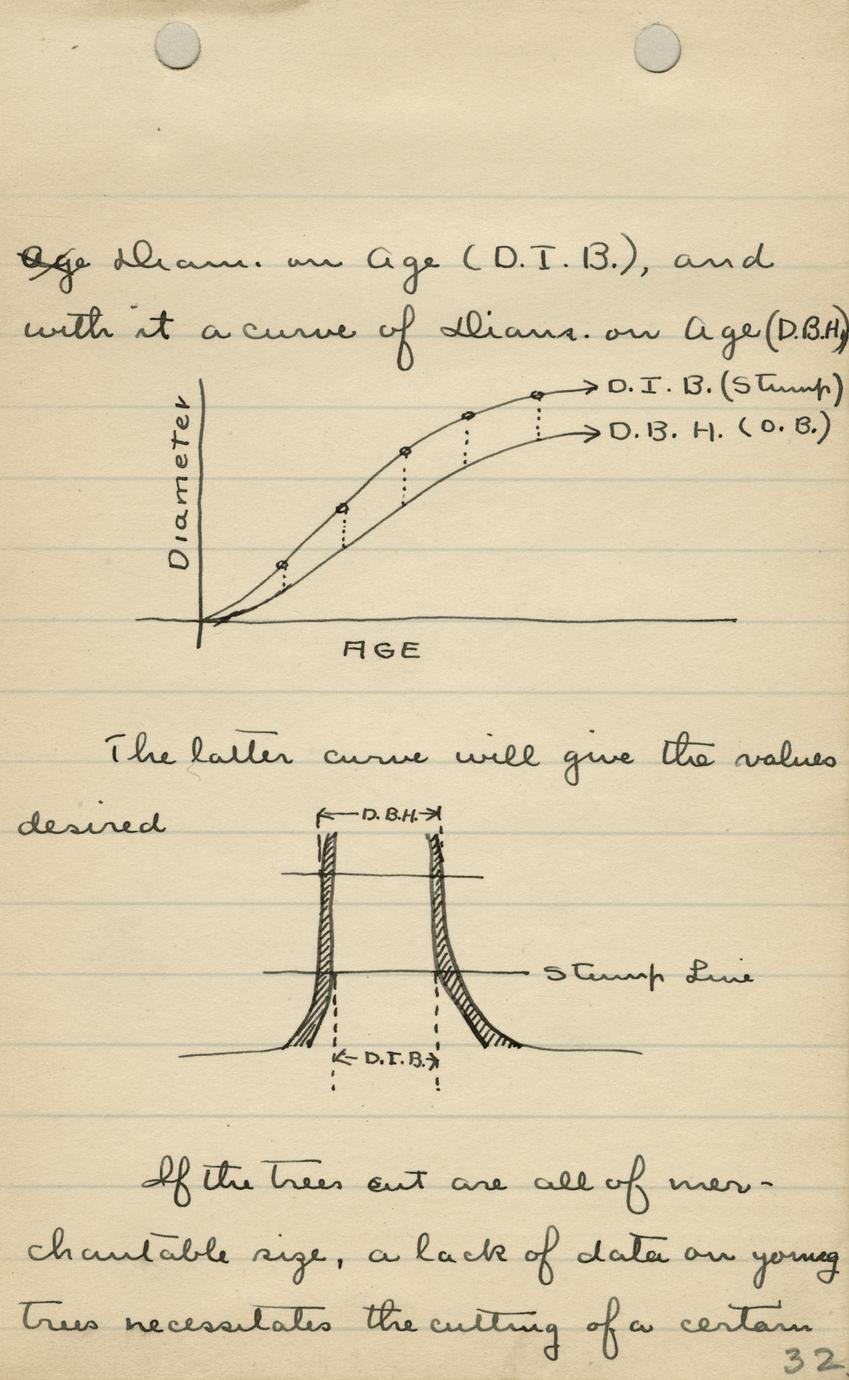 Age Diam. on Age (D.I.B.), and
with it a curve of Diam. on Age (D.B.H.)
D.I.B. (Stump)
D.B.H. (O.B.)
Diameter
AGE
The latter curve will give the values
desired
D.B.H.
Stump Line
D.I.B.
If the trees cut are all of mer-
chantable size, a lack of data on young
trees necessitates the cutting of a certain
32